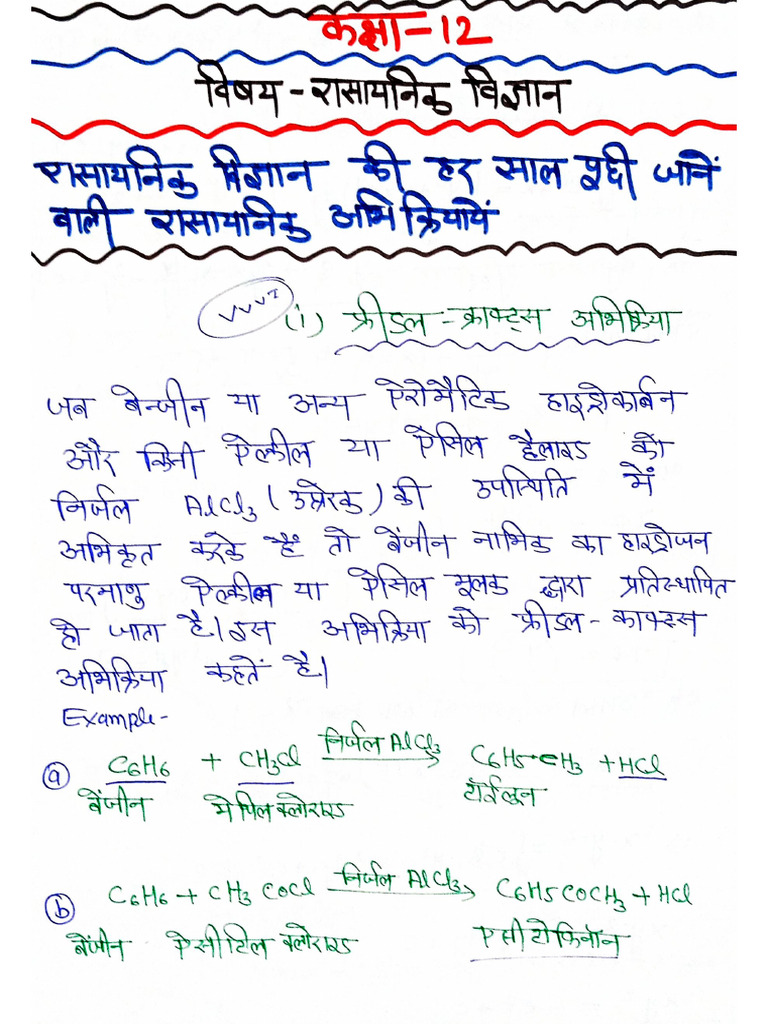 कक्षा-12
विषय - रासायनिक विज्ञान
रासायनिक विज्ञान की हर साल पूछी जानें
वाली रासायनिक अभिक्रियायें
VVVI (i) फ्रीडल-क्राफ्ट्स अभिक्रिया
जब बेन्जीन या अन्य ऐरोमैटिक हाइड्रोकार्बन
और किसी ऐल्कील या ऐसिल हैलाइड को
निर्जल AlCl3 (उत्प्रेरक) की उपस्थिति में
अभिकृत करके हैं तो बेंजीन नाभिक का हाइड्रोजन
परमाणु ऐल्कील या ऐसिल मूलक द्वारा प्रतिस्थापित
हो जाता है। इस अभिक्रिया को फ्रीडल-क्राफ्ट्स
अभिक्रिया कहतें है।
Example-
(a) C6H6 + CH3Cl निर्जल AlCl3 → C6H5-CH3 + HCl
बेंजीन मेथिल क्लोराइड टॉईलून
(b) C6H6 + CH3COCl निर्जल AlCl3 → C6H5COCH3 + HCl
बेंजीन ऐसीटिल क्लोराइड एसीटोफिनॉन